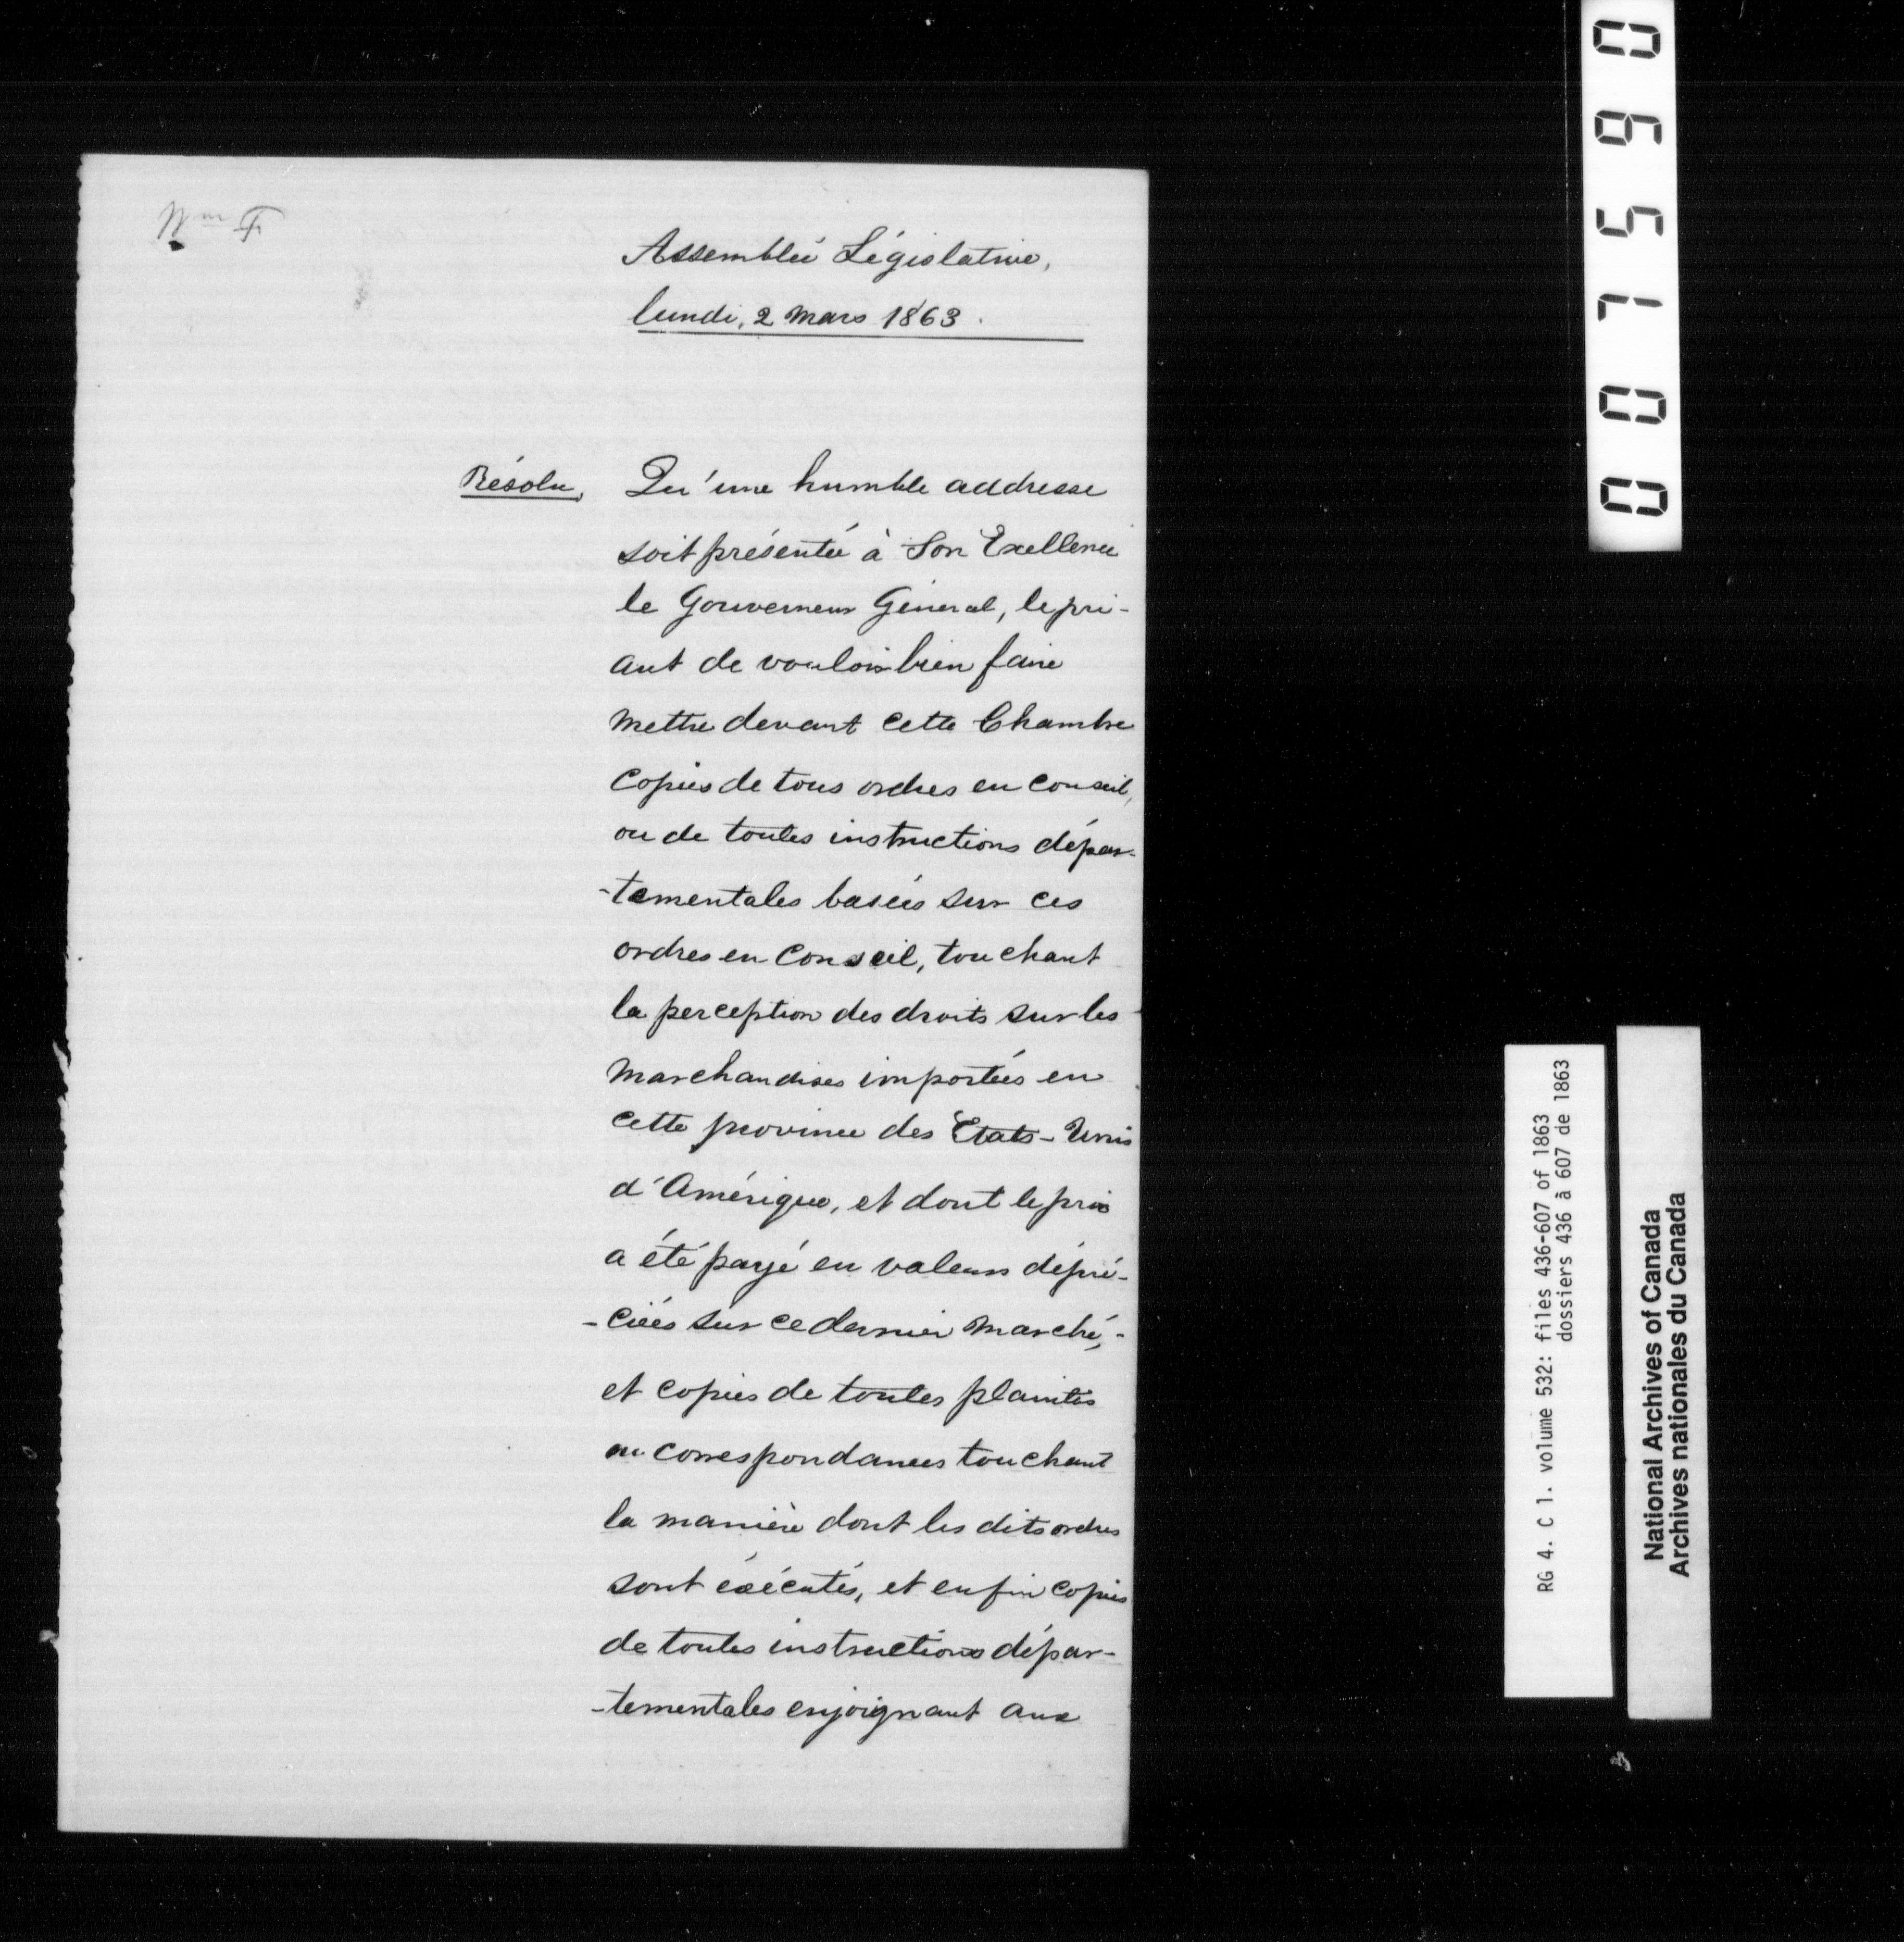 Wm F
Assemblée Législative,
lundi, 2 mars 1863.
Résolu, Qu'une humble addresse
soit présentée à Son Exellence
le Gouverneur Général, le pri-
ant de vouloir bien faire
mettre devant cette Chambre
Copies de tous ordres en Conseil,
ou de toutes instructions dépar-
-tementales basées sur ces
ordres en Conseil, touchant
la perception des droits sur les
Marchandises importées en
cette province des Etats-Unis
d'Amérique, et dont le prix
a été payé en valeurs dépré-
-ciées sur ce dernier marché,-
et copies de toutes plaintes
ou correspondances touchant
la manière dont les dits ordres
sont éxécutés, et enfin copies
de toutes instructions dépar-
-tementales enjoignant aux
001590
RG 4. C 1. volume 532: files 436-607 of 1863
dossiers 436 à 607 de 1863
National Archives of Canada
Archives nationales du Canada